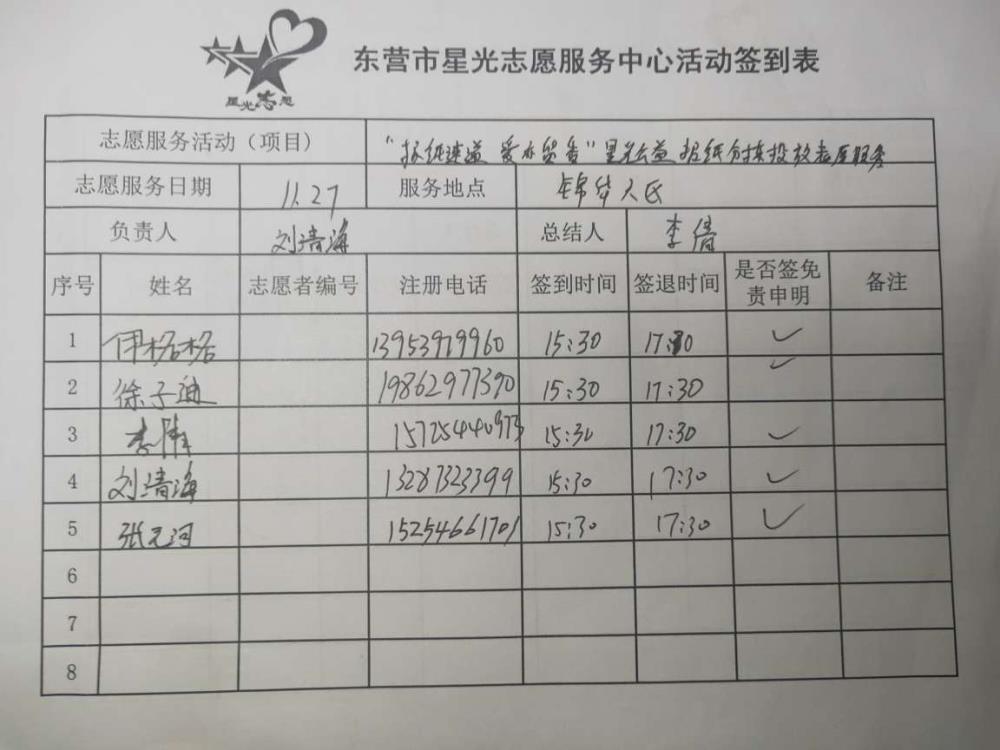 星光志愿
东营市星光志愿服务中心活动签到表
志愿服务活动（项目） 星光公益 报纸 投放 服务
志愿服务日期 11.27 服务地点 锦华人民
负责人 刘清海 总结人 李倩
序号 姓名 志愿者编号 注册电话 签到时间 签退时间 是否签免责申明 备注
1 伊格格 13953919960 15:30 17:30 ✓
2 徐子迪 19862977390 15:30 17:30 ✓
3 李伟 15725440973 15:30 17:30 ✓
4 刘清海 13287323399 15:30 17:30 ✓
5 张元河 15254661701 15:30 17:30 ✓
6
7
8